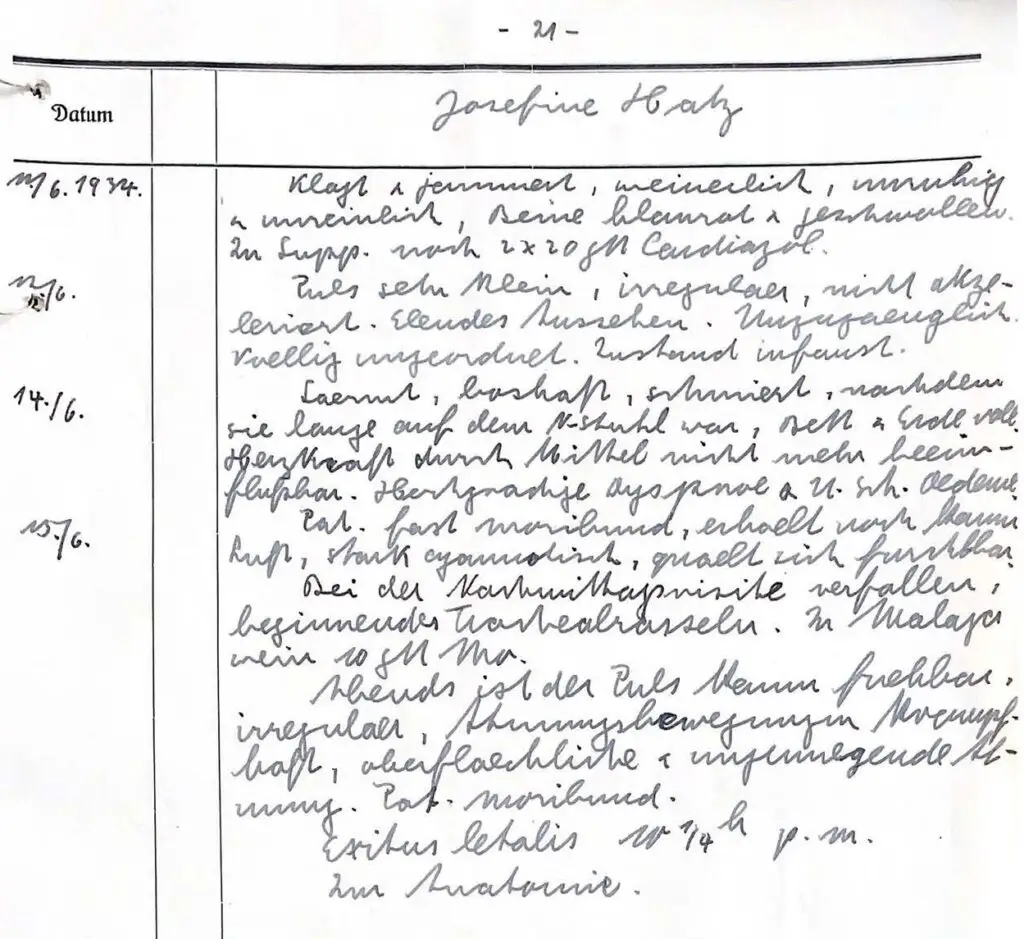 - 21 -
Datum
Josefine Hatz
/6. 1934.
Klagt & jammert, weinerlich, unruhig
& unreinlich, Beine blaurot & geschwollen.
In Supp. noch 2 x 20 gtt Cardiazol.
/6.
Puls sehr klein, irregulaer, nicht akze-
leriert. Elendes Aussehen. Unzugaenglich.
Voellig ungeordnet. Zustand infaust.
14./6.
Laermt, boshaft, schmiert, nachdem
sie lange auf dem N-stuhl war, Bett & Erde voll.
Herzkraft durch Mittel nicht mehr beein-
flußbar. Hochgradige Dyspnoe & U. Sch. Oedeme.
15./6.
Pat. fast moribund, erhaelt noch kaum
Luft, stark cyanotisch, quaelt sich furchtbar.
Bei der Nachmittagsvisite verfallen,
beginnendes Trachealrasseln. In Malaga
wein 10 gtt Mo.
Abends ist der Puls kaum fuehlbar,
irregulaer, Atmungsbewegungen krampf-
haft, oberflaechliche & ungenuegende At-
mung. Pat. moribund.
Exitus letalis 10 1/4 h p. m.
Zur Anatomie.